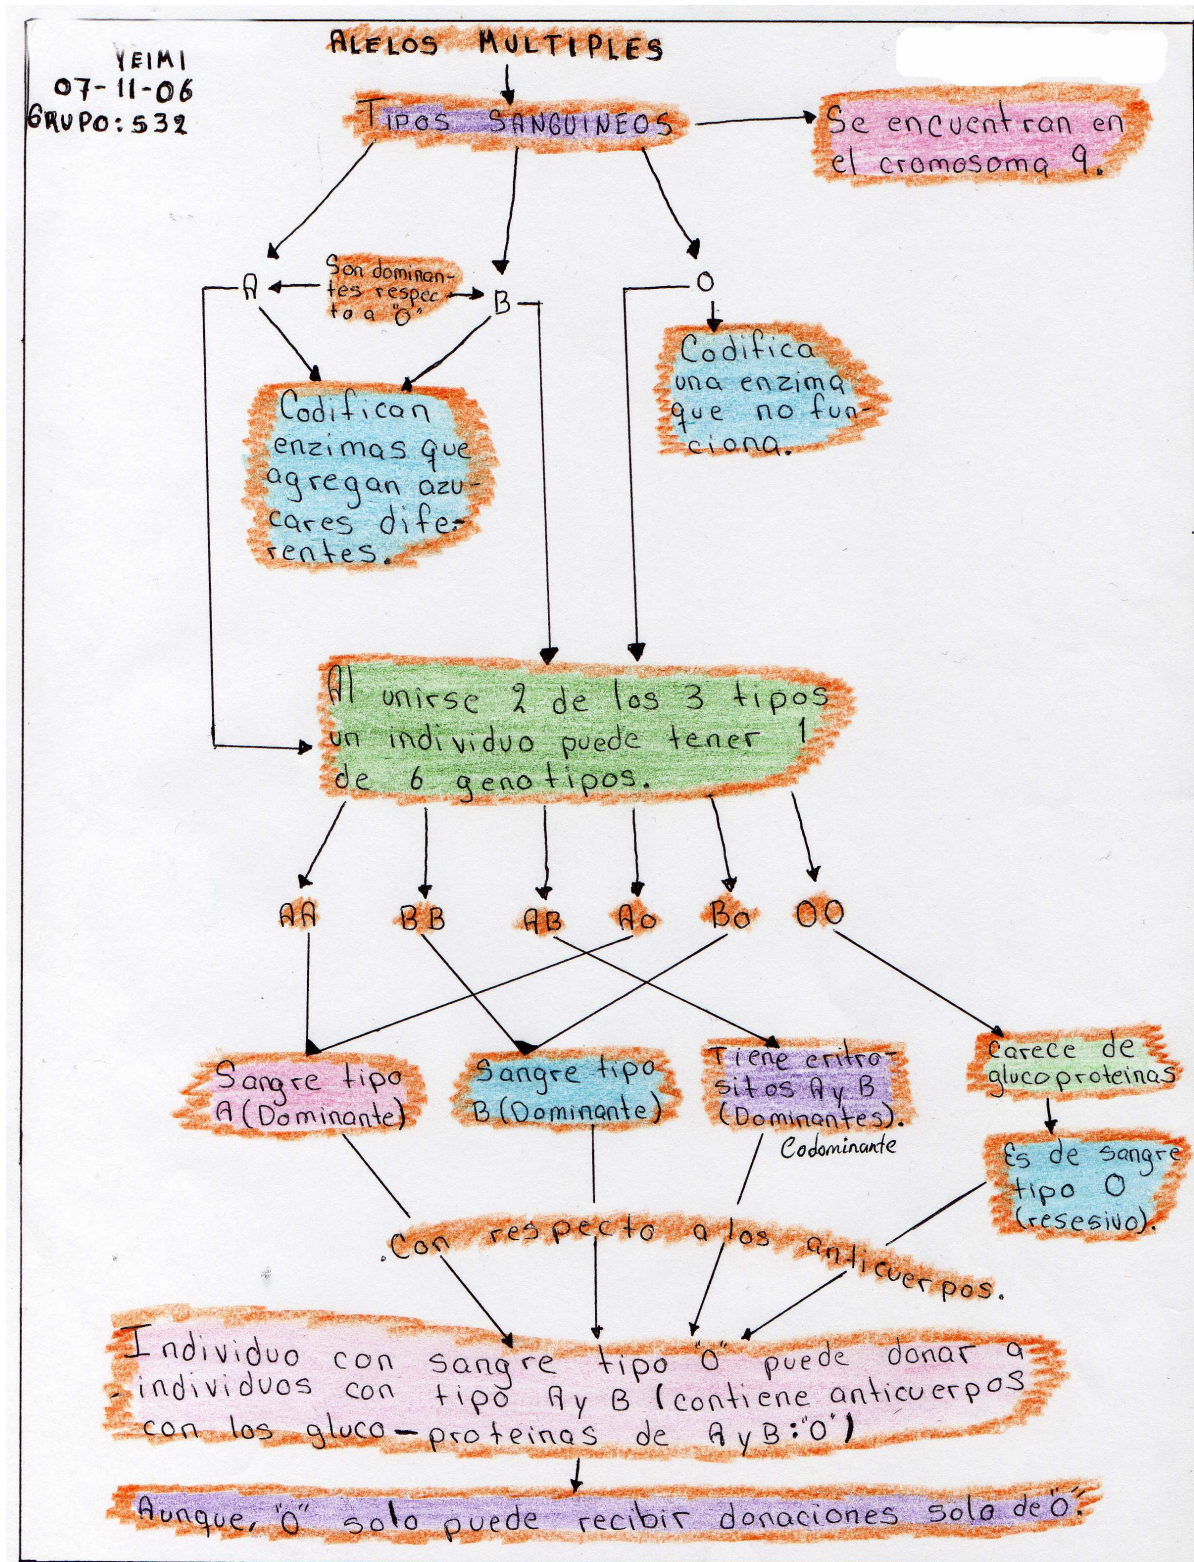 ALELOS MULTIPLES
YEIMI
07-11-06
GRUPO: 532
TIPOS SANGUINEOS
Se encuentran en
el cromosoma 9.
A
Son dominan-
tes respec-
to a "O"
B
O
Codifican
enzimas que
agregan azu-
cares dife-
rentes.
Codifica
una enzima
que no fun-
ciona.
Al unirse 2 de los 3 tipos
un individuo puede tener 1
de 6 genotipos.
AA BB AB Ao Bo OO
Sangre tipo
A (Dominante)
Sangre tipo
B (Dominante)
Tiene eritro-
sitos A y B
(Dominantes).
Codominante
Carece de
glucoproteinas
Es de sangre
tipo O
(resesivo).
.Con respecto a los anticuerpos.
Individuo con sangre tipo "O" puede donar a
individuos con tipo A y B (contiene anticuerpos
con los gluco-proteinas de A y B:"O")
Aunque, "O" solo puede recibir donaciones solo de "O".